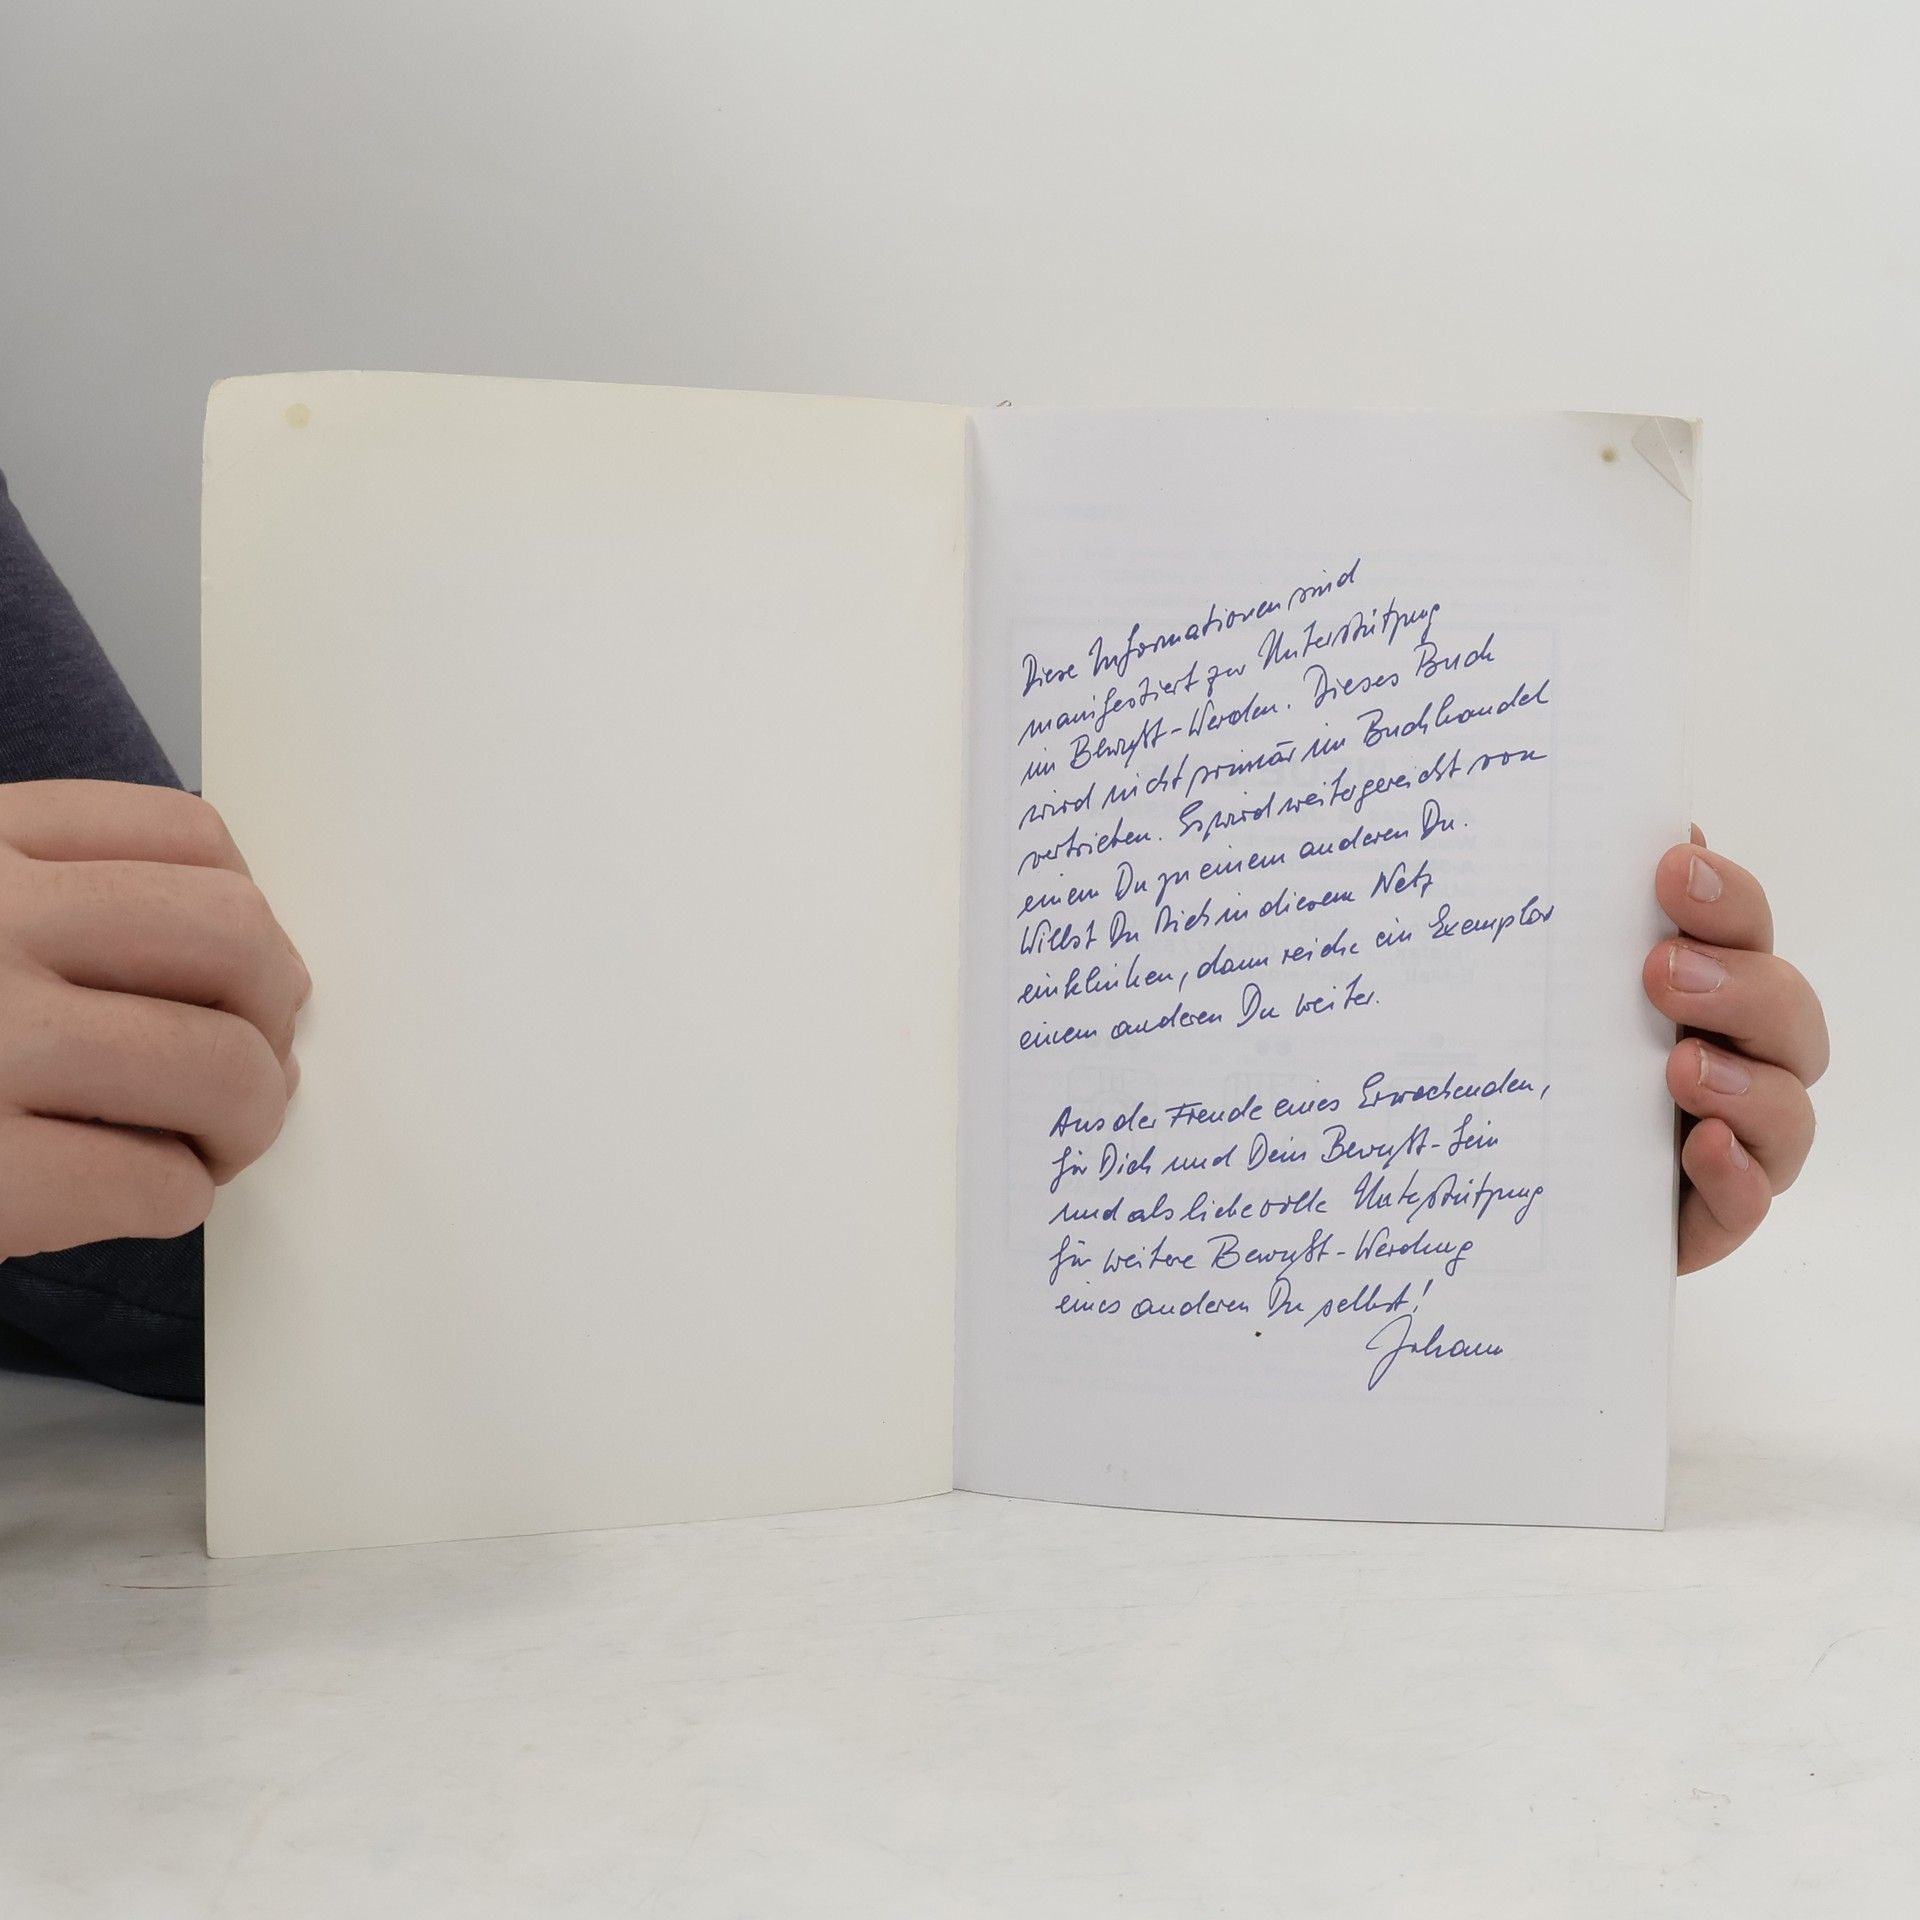 Diese Informationen sind
manifestiert zur Unterstützung
im Bewußt-Werden. Dieses Buch
wird nicht primär im Buchhandel
vertrieben. Es wird weitergereicht von
einem Du zu einem anderen Du.
Willst Du Dich in diesem Netz
einklinken, dann reiche ein Exemplar
einem anderen Du weiter.
Aus der Freude eines Erwachenden,
für Dich und Dein Bewußt-Sein
und als liebevolle Unterstützung
für weitere Bewußt-Werdung
eines anderen Du selbst!
Johann